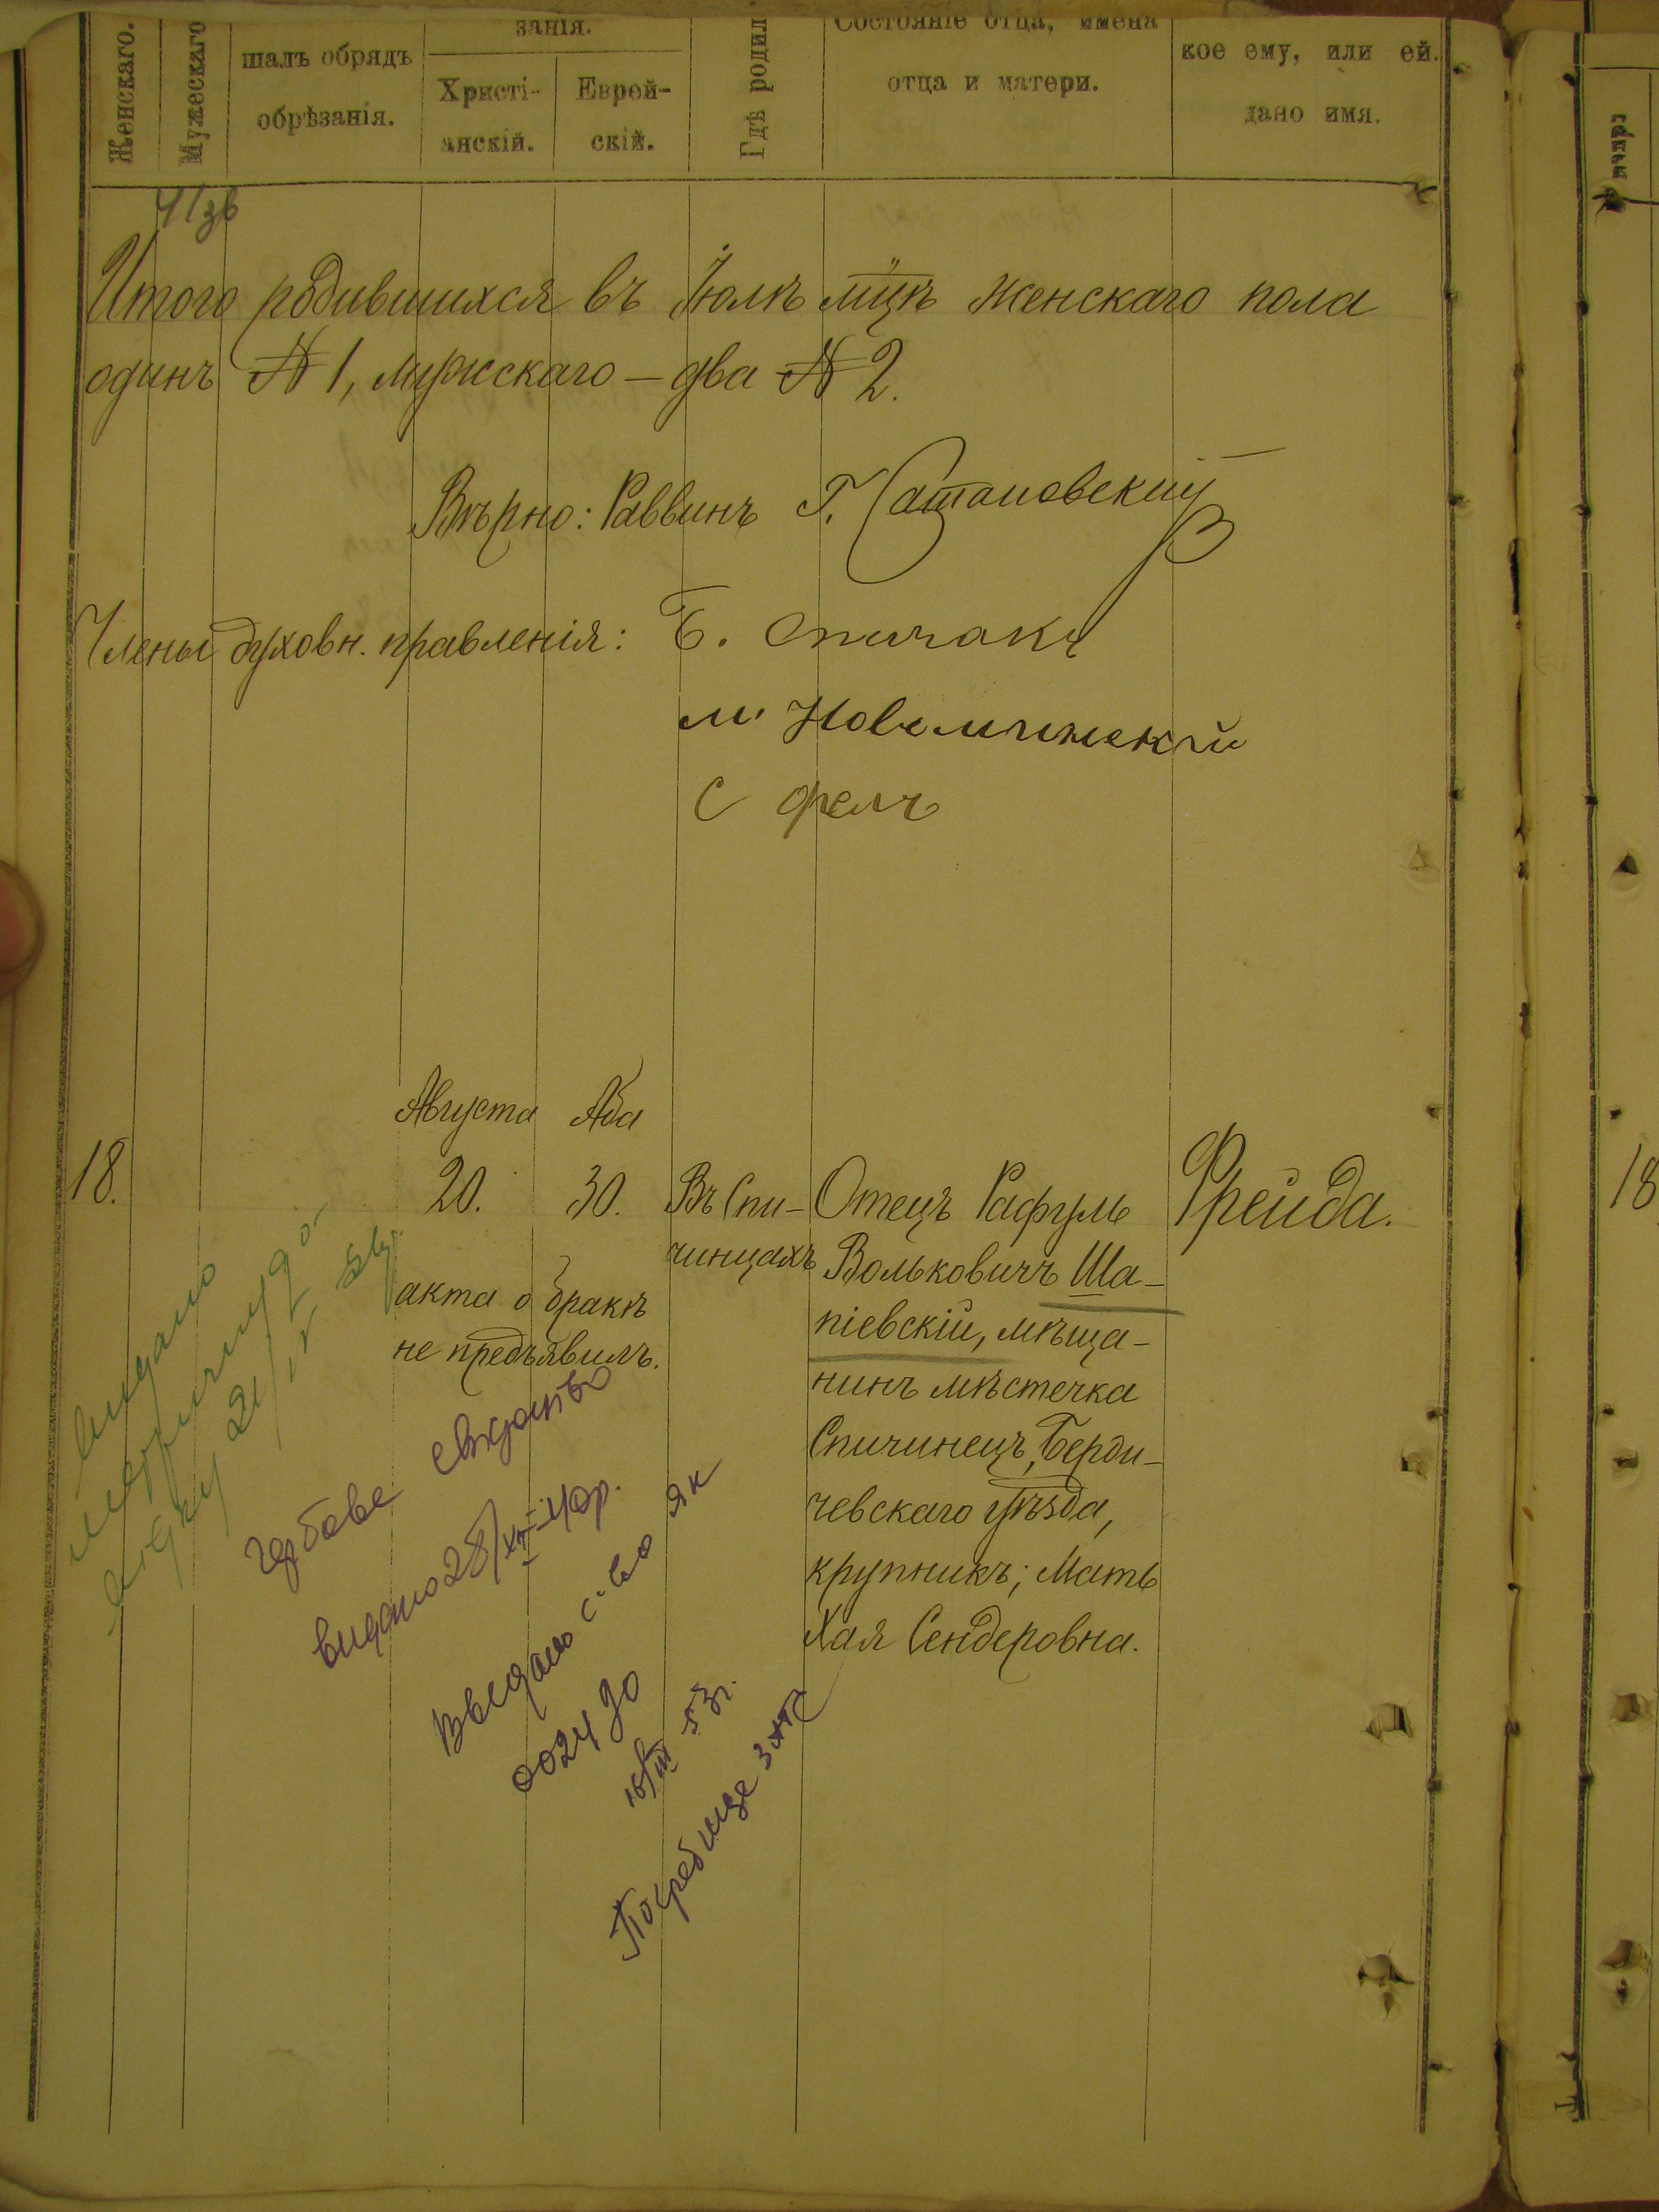 Женскаго.
Мужескаго
шалъ обрядъ
обрѣзанія.
занія.
Христі-
анскій.
Еврей-
скій.
Гдѣ родил
Состояніе отца, имена
отца и матери.
кое ему, или ей.
дано имя.
Итого родившихся въ Іюлѣ мцѣ женскаго пола
одинъ № 1, мужскаго – два № 2.
Вѣрно: Раввинъ Г. Сатановскій
Члены духовн. правленія: Б. Спичакъ
М. Новоминскій
С
Августа Аба
18.
20. 30. Въ Спи-
чинцахъ
Отецъ Рафуль
Вольковичъ Ша-
піевскій, мѣща-
нинъ мѣстечка
Спичинецъ, Берди-
чевскаго уѣзда,
крупникъ; Мать
Хая Сендеровна.
Фрейда.
акта о бракѣ
не предъявилъ.
видано
метричну
21/IV
гербове свідоцтво
видано 28/XII-40р.
Выдано с-во ЯК
0024
16/III 53г.
Погребище ЗАГС
18